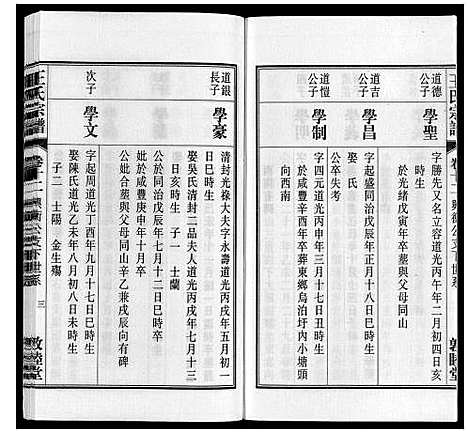 王氏宗譜
卷十二
道德公子
學聖
字勝先又名立容道光丙午年二月初四日亥
時生
於光緒戊寅年卒塟與父母同山
道吉公子
學昌
字起盛同治戊辰年正月十八日巳時生
娶氏
公卒失考
道愷公子
學制
字四元道光甲申年三月十七日丑時生
於咸豐辛酉年卒葬東鄉烏泊圩内小塘頭
向西南
道銀長子
學豪
清封光祿大夫字永壽道光丙戌年五月初一
日巳時生
娶吳氏清封一品夫人道光丙戌年七月十三
日亥時生 子一 士蘭
公於同治戊辰年七月十二日巳時卒
妣咸豐庚申年十月卒
公妣合塟與父母同山辛乙兼戌辰向有碑
次子
學文
字起周道光丁酉年九月十七日巳時生
娶陳氏道光乙未年八月初八日未時生
子二 士陽 金生殤
王氏宗譜
卷十二
三
敦睦堂